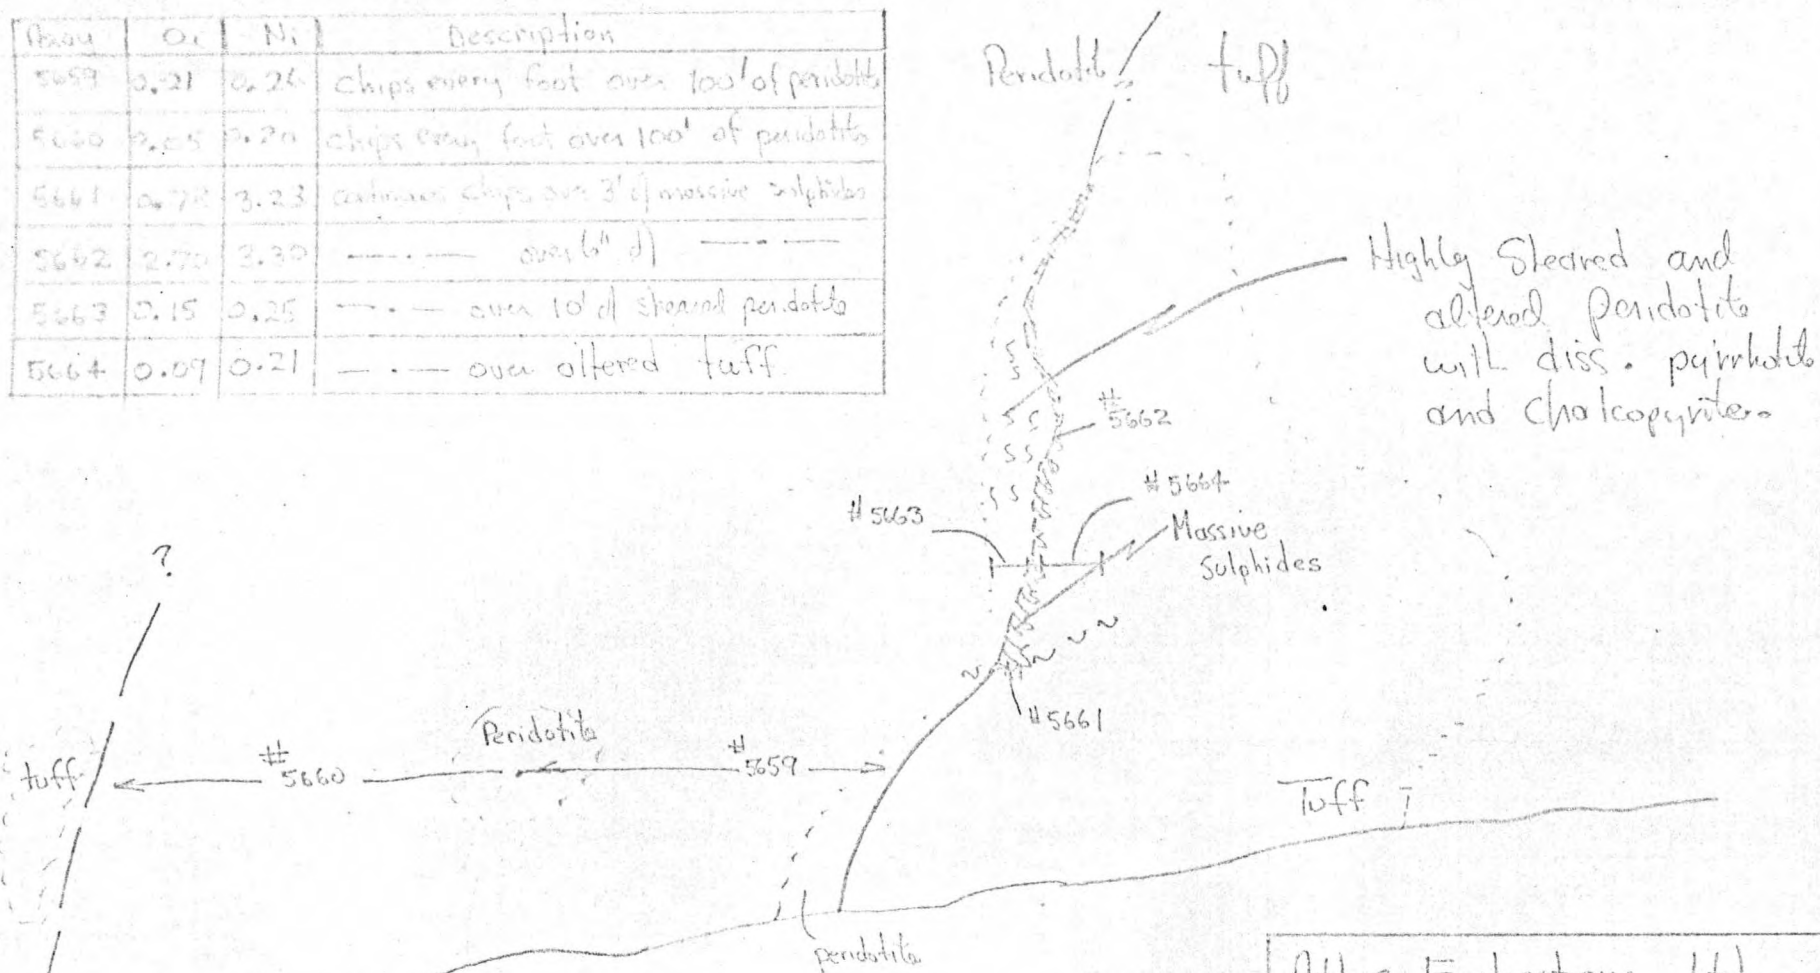 Assay Ni Description
5659 0.21 0.26 chips every foot over 100' of peridotite
5660 0.05 0.20 chips every foot over 100' of peridotite
5661 3.23 continuous chips over 3' of massive sulphides
5662 2.70 3.30 —.— over 6" of —.—
5663 0.15 0.25 —.— over 10' of sheared peridotite
5664 0.09 0.21 —.— over altered tuff
Peridotite tuff
Highly Sheared and
altered peridotite
with diss. pyrrhotite
and chalcopyrite.
#5662
#5664
#5663
Massive
Sulphides
?
#5661
Peridotite
tuff #5660 #5659
Tuff
peridotite